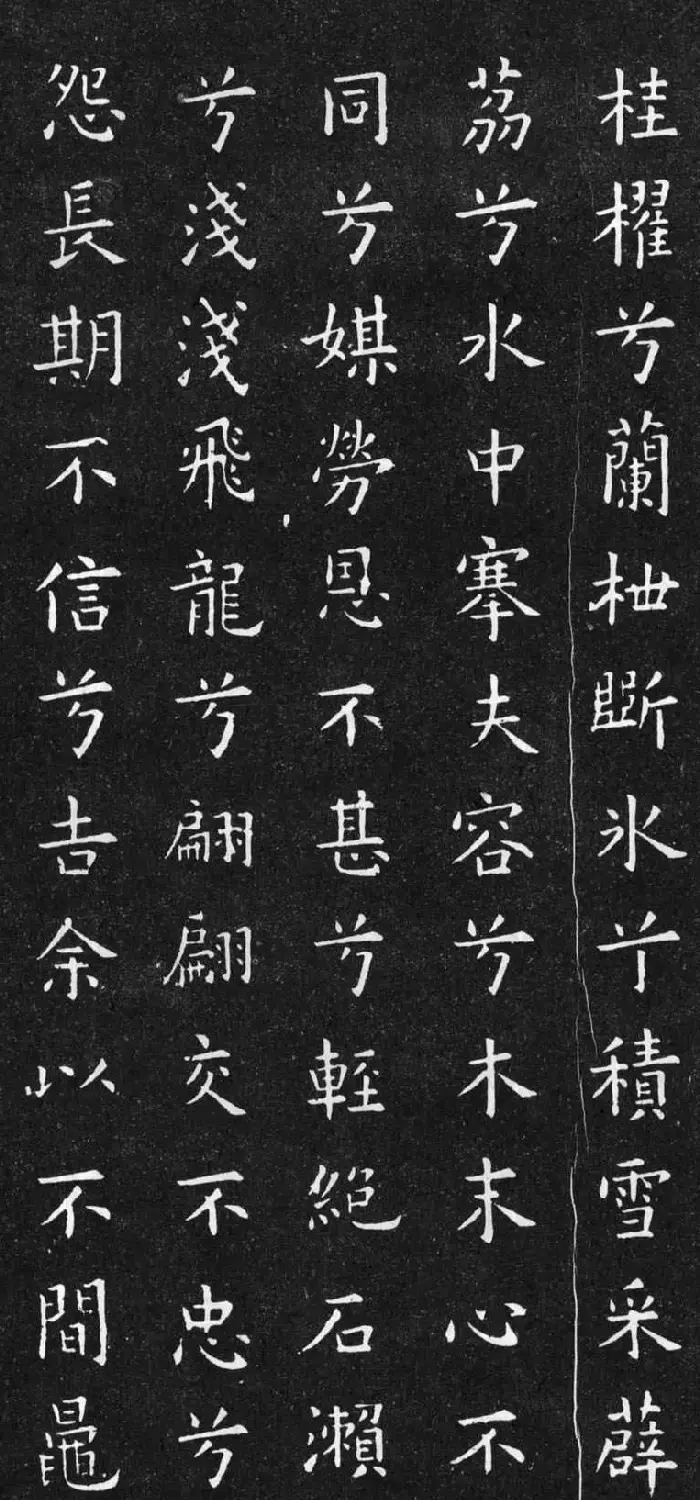 桂櫂兮蘭枻斲氷兮積雪采薜
荔兮水中搴夫容兮木末心不
同兮媒勞恩不甚兮輕絕石瀨
兮淺淺飛龍兮翩翩交不忠兮
怨長期不信兮告余以不閒鼂